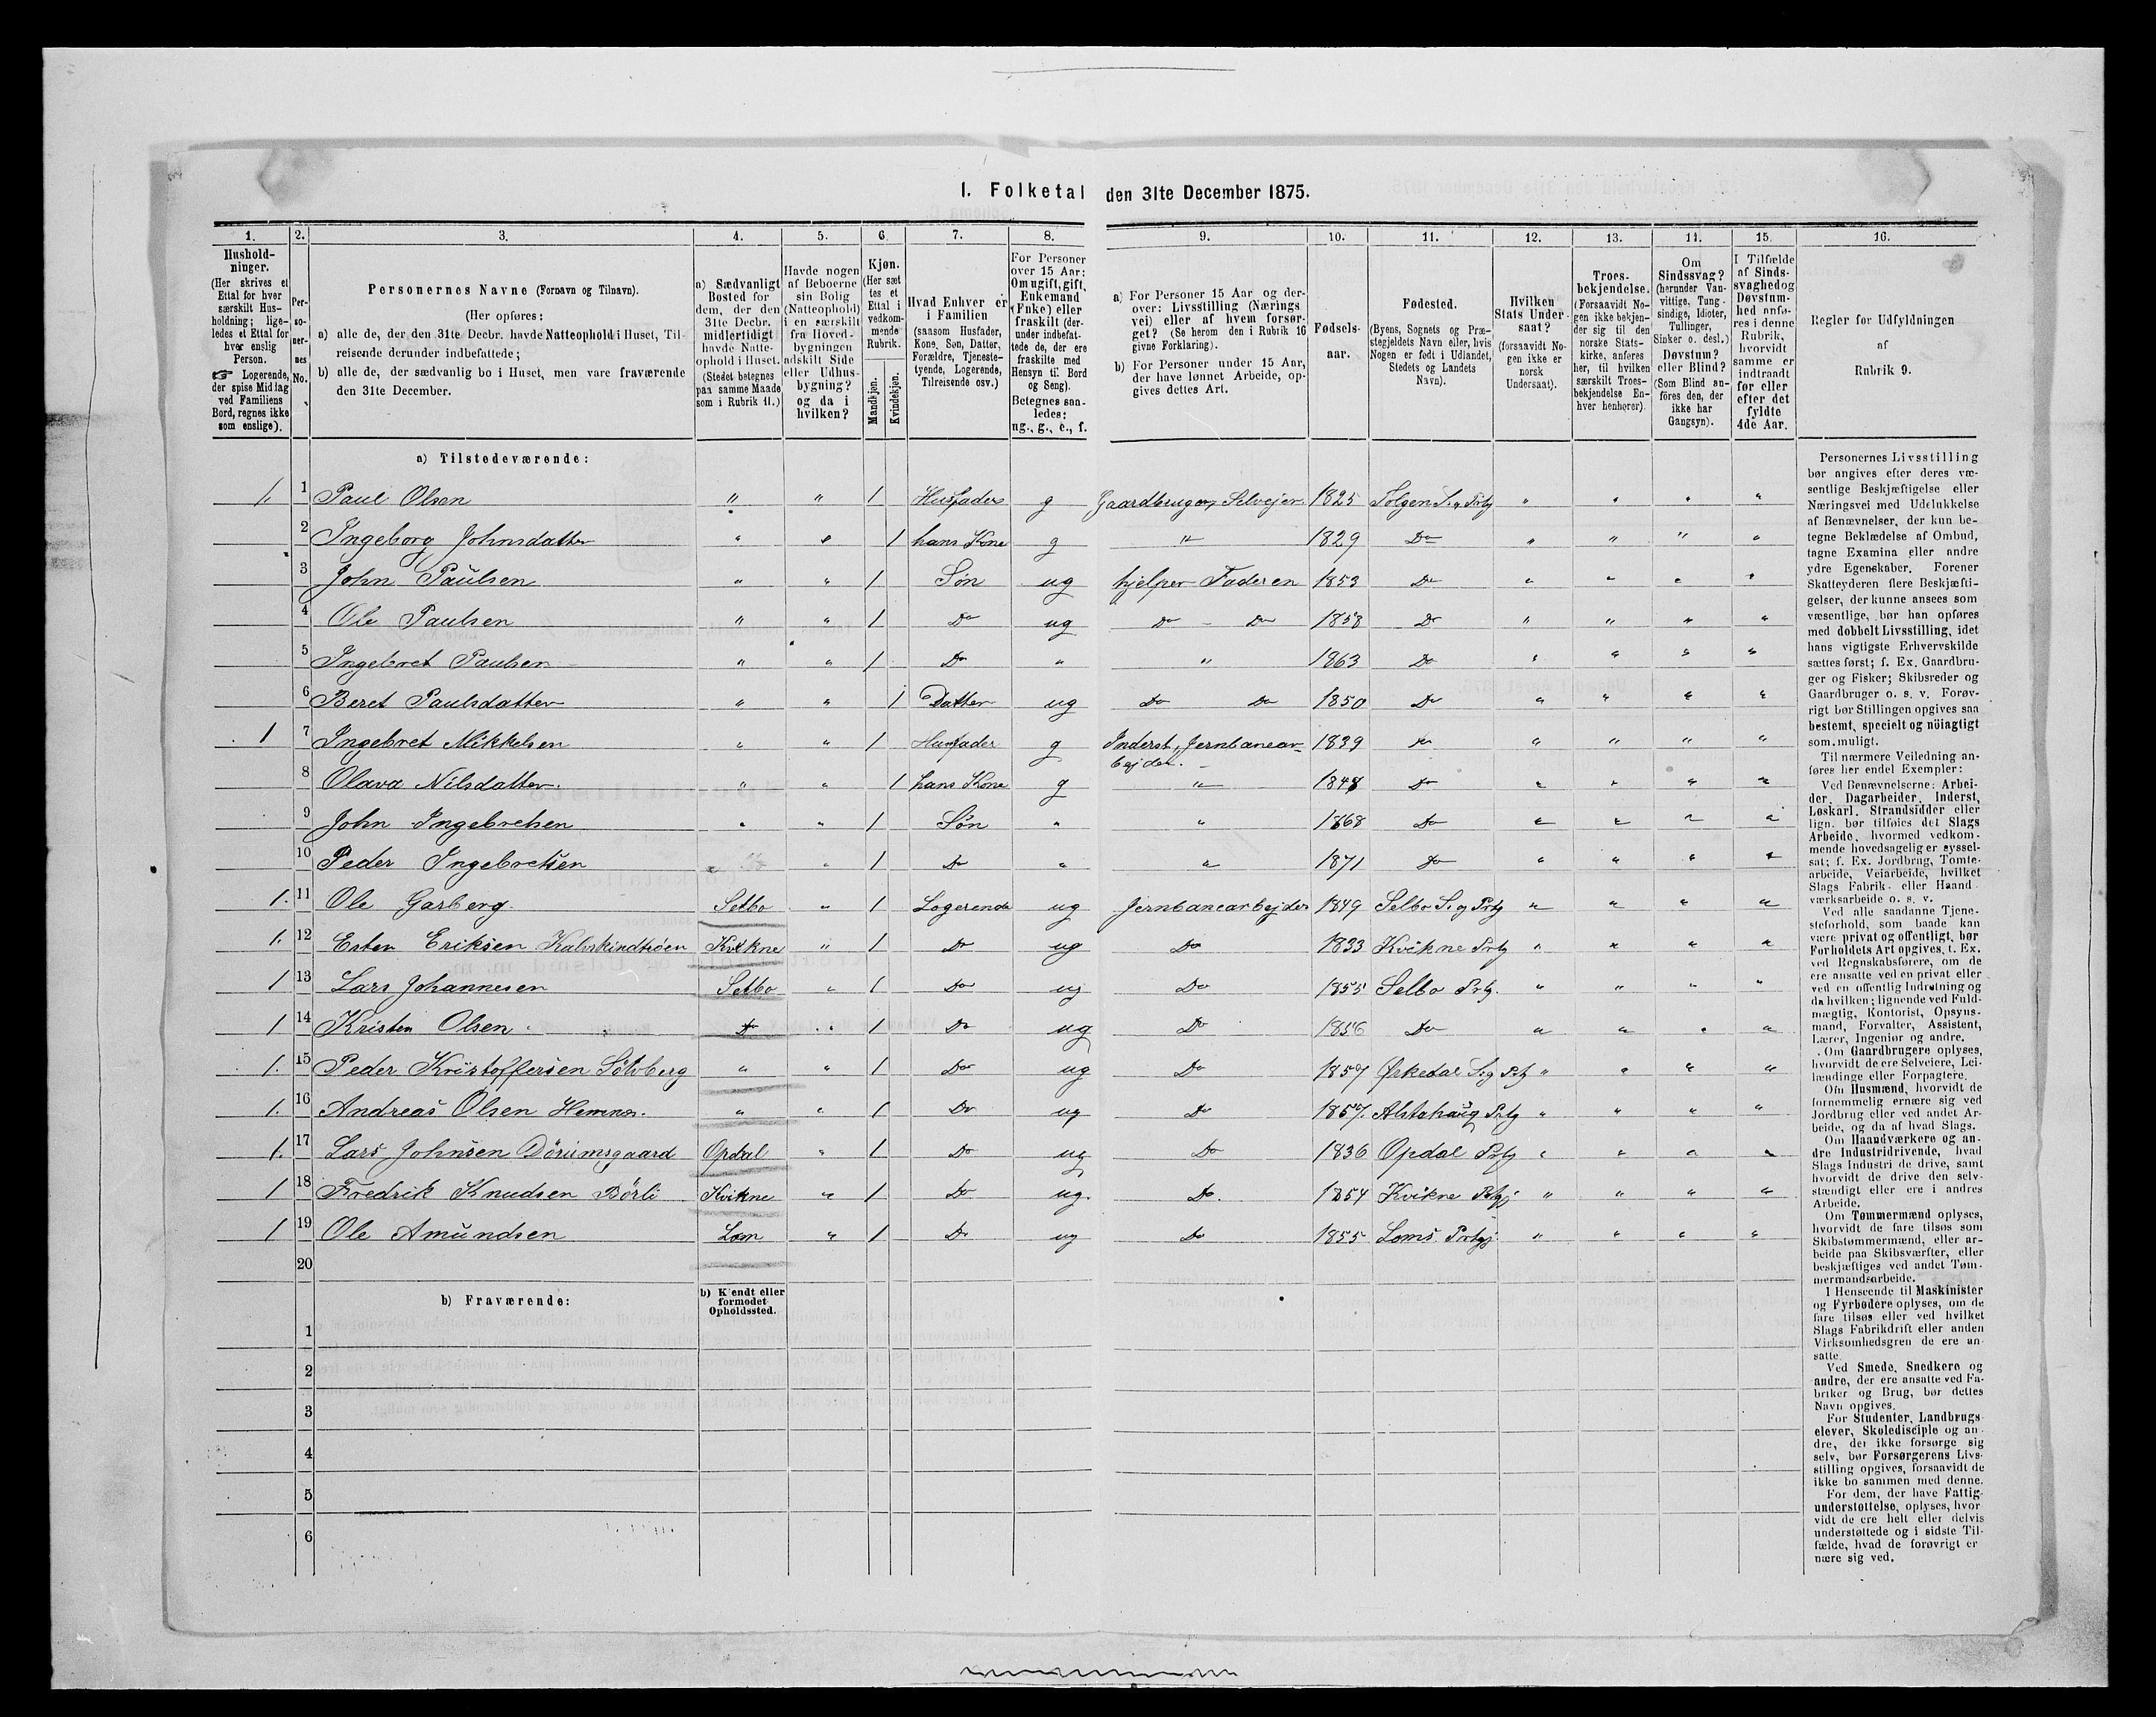 I. Folketal den 31te December 1875.
1. 2. 3. 4. 5. 6. 7. 8. 9. 10. 11. 12. 13. 14. 15. 16.
Hushold-
ninger.
(Her skrives et
Ettal for hver
særskilt Hus-
holdning; lige-
ledes et Ettal for
hver enslig
Person.
☞ Logerende,
der spise Middag
ved Familiens
Bord, regnes ikke
som enslige).
Per-
so-
ner-
nes
No.
Personernes Navne (Fornavn og Tilnavn).
(Her opføres:
a) alle de, der den 31te Decbr. havde Natteophold i Huset, Til-
reisende derunder indbefattede;
b) alle de, der sædvanlig bo i Huset, men vare fraværende
den 31te December.
a) Sædvanligt
Bosted for
dem, der den
31te Decbr.
midlertidigt
havde Natte-
ophold i Huset.
(Stedet betegnes
paa samme Maade
som i Rubrik 11.)
Havde nogen
af Beboerne
sin Bolig
(Natteophold)
i en særskilt
fra Hoved-
bygningen
adskilt Side
eller Udhus-
bygning?
og da i
hvilken?
Kjøn.
(Her sæt
tes et
Ettal i
vedkom-
mende
Rubrik.
Mandkjøn.
Kvindekjøn.
Hvad Enhver er
i Familien
(saasom Husfader,
Kone, Søn, Datter,
Forældre, Tjeneste-
tyende, Logerende,
Tilreisende osv.)
For Personer
over 15 Aar:
Om ugift, gift,
Enkemand
(Enke) eller
fraskilt (der-
under indbefat-
tede de, der ere
fraskilte med
Hensyn til Bord
og Seng).
Betegnes saa-
ledes:
ug., g., e., f.
a) For Personer 15 Aar og der-
over: Livsstilling (Nærings
vei) eller af hvem forsør-
get? (Se herom den i Rubrik 16
givne Forklaring).
b) For Personer under 15 Aar,
der have lønnet Arbeide, op-
gives dettes Art.
Fødsels-
aar.
Fødested.
(Byens, Sognets og Præ-
stegjeldets Navn eller, hvis
Nogen er født i Udlandet,
Stedets og Landets
Navn).
Hvilken
Stats Under-
saat?
(forsaavidt No-
gen ikke er
norsk
Undersaat).
Troes-
bekjendelse.
(Forsaavidt No-
gen ikke bekjen-
der sig til den
norske Stats-
kirke, anføres
her, til hvilken
særskilt Troes-
bekjendelse En-
hver henhører).
Om
Sindssvag?
(herunder Van-
vittige, Tung-
sindige, Idioter,
Tullinger,
Sinker o. desl.)
Døvstum?
eller Blind?
(Som Blind an-
føres den, der
ikke har
Gangsyn).
I Tilfælde
af Sinds-
svaghed og
Døvstum-
hed anfø-
res i denne
Rubrik,
hvorvidt
samme er
indtraadt
før eller
efter det
fyldte
4de Aar.
Regler for Udfyldningen
af
Rubrik 9.
a) Tilstedeværende:
1. 1 Paul Olsen " " 1 Husfader g Gaardbruger, Selvejer 1825 Tolgen S. og Prtg " " " "
2 Ingeborg Johnsdatter " " 1 hans Kone g " 1829 Do " " " "
3 John Paulsen " " 1 Søn ug hjelper Faderen 1853 Do " " " "
4 Ole Paulsen " " 1 Do ug Do - Do 1858 Do " " " "
5 Ingebret Paulsen " " 1 Do " " 1863 Do " " " "
6 Beret Paulsdatter " " 1 Datter ug Do Do 1850 Do " " " "
1 7 Ingebret Mikkelsen " " 1 Husfader g Inderst, Jernbanear-
bejder. 1839 Do " " " "
8 Olava Nilsdatter " " 1 hans Kone g " 1848 Do " " " "
9 John Ingebretsen " " 1 Søn " " 1868 Do " " " "
10 Peder Ingebretsen " " 1 Do " " 1871 Do " " " "
1. 11 Ole Garberg Selbo " 1 Logerende ug Jernbanearbejder 1849 Selbo S. og Prtg " " " "
1. 12 Esten Eriksen Kalvskindtrøen Kvikne " 1 Do ug Do 1833 Kvikne Prtg " " " "
1 13 Lars Johannesen Selbo " 1 Do ug Do 1855 Selbo Prtg. " " " "
1 14 Kristen Olsen Do " 1 Do ug Do 1856 Do " " " "
1. 15 Peder Kristoffersen Sølvberg " " 1 Do ug Do 1857 Ørkedal S og Prtg " " " "
1. 16 Andreas Olsen Hemnes. " " 1 Do ug Do 1857. Alstahaug Prtg " " " "
1. 17 Lars Johnsen Dørumsgaard Opdal " 1 Do ug Do 1836 Opdal Prtg " " " "
1 18 Fredrik Knudsen Børli Kvikne " 1 Do ug. Do. 1854 Kvikne Prtgj " " " "
1 19 Ole Amundsen Lom " 1 Do ug Do 1855 Loms Prtgj " " " "
20
b) Fraværende:
b) Kjendt eller
formodet
Opholdssted.
1
2
3
4
5
6
Personernes Livsstilling
bør angives efter deres væ-
sentlige Beskjæftigelse eller
Næringsvei med Udelukkelse
af Benævnelser, der kun be-
tegne Beklædelse af Ombud,
tagne Examina eller andre
ydre Egenskaber. Forener
Skatteyderen flere Beskjæfti-
gelser, der kunne ansees som
væsentlige, bør han opføres
med dobbelt Livsstilling, idet
hans vigtigste Erhvervskilde
sættes først; f. Ex. Gaardbru-
ger og Fisker; Skibsreder og
Gaardbruger o. s. v. Forøv-
rigt bør Stillingen opgives saa
bestemt, specielt og nöiagtigt
som muligt.
Til nærmere Veiledning an-
føres her endel Exempler:
Ved Benævnelserne: Arbei-
der, Dagarbeider, Inderst,
Løskarl, Strandsidder eller
lign. bør tilføies det Slags
Arbeide, hvormed vedkom-
mende hovedsagelig er syssel-
sat; f. Ex. Jordbrug, Tomte-
arbeide, Veiarbeide, hvilket
Slags Fabrik- eller Haand-
værksarbeide o. s. v.
Ved alle saadanne Tjene-
steforhold, som baade kan
være privat og offentligt, bør
Forholdets Art opgives, t. Ex.
ved Regnskabsførere, om de
ere ansatte ved en privat eller
ved en offentlig Indretning og
da hvilken; lignende ved Fuld-
mægtig, Kontorist, Opsyns-
mand, Forvalter, Assistent,
Lærer, Ingeniør og andre.
Om Gaardbrugere oplyses,
hvorvidt de ere Selveiere, Lei-
lændinge eller Forpagtere.
Om Husmænd, hvorvidt de
fornemmelig ernære sig ved
Jordbrug eller ved andet Ar-
beide, og da af hvad Slags.
Om Haandværkere og an-
dre Industridrivende, hvad
Slags Industri de drive, samt
hvorvidt de drive den selv-
stændigt eller ere i andres
Arbeide.
Om Tømmermænd oplyses,
hvorvidt de fare tilsøs som
Skibstømmermænd, eller ar-
beide paa Skibsværfter, eller
beskjæftiges ved andet Tøm-
mermandsarbeide.
I Henseende til Maskinister
og Fyrbødere oplyses, om de
fare tilsøs eller ved hvilket
Slags Fabrikdrift eller anden
Virksomhedsgren de ere an-
satte.
Ved Smede, Snedkere og
andre, der ere ansatte ved Fa-
briker og Brug, bør dettes
Navn opgives.
For Studenter, Landbrugs-
elever, Skoledisciple og an-
dre, der ikke forsørge sig
selv, bør Forsørgerens Livs-
stilling opgives, forsaavidt de
ikke bo sammen med denne.
For dem, der have Fattig-
understøttelse, oplyses, hvor
vidt de ere helt eller delvis
understøttede og i sidste Til-
fælde, hvad de forøvrigt er
nære sig ved.